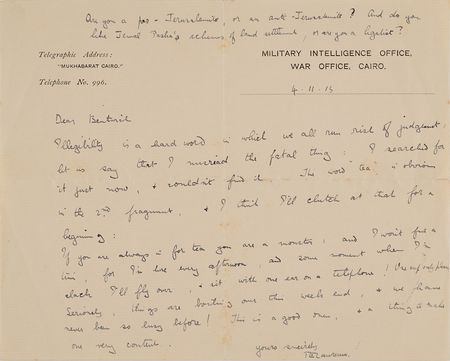 Are you a pro-Jerusalemite, or an anti-Jerusalemite? And do you
like Jemal Pasha's schemes of land settlement, or are you a legalist?
Telegraphic Address:
"MUKHABARAT CAIRO."
Telephone No. 996.
MILITARY INTELLIGENCE OFFICE,
WAR OFFICE, CAIRO.
4-11-15
Dear
Illegibility is a hard word in which we all run risk of judgement,
let us say that I misread the fatal thing: I searched for
it just now, & couldn't find it. The word tea is obvious
in the 2nd fragment, & I think I'll clutch at that for a
beginning:
If you are always in for tea you are a monster: and I won't fix a
time, for I'm here every afternoon, and some moment when I'm
slack I'll fly over, & sit with one ear on a telephone!
Seriously, things are boiling over this week end, & we have
never been so busy before! This is a good omen, & a thing to make
one very content.
Yours sincerely